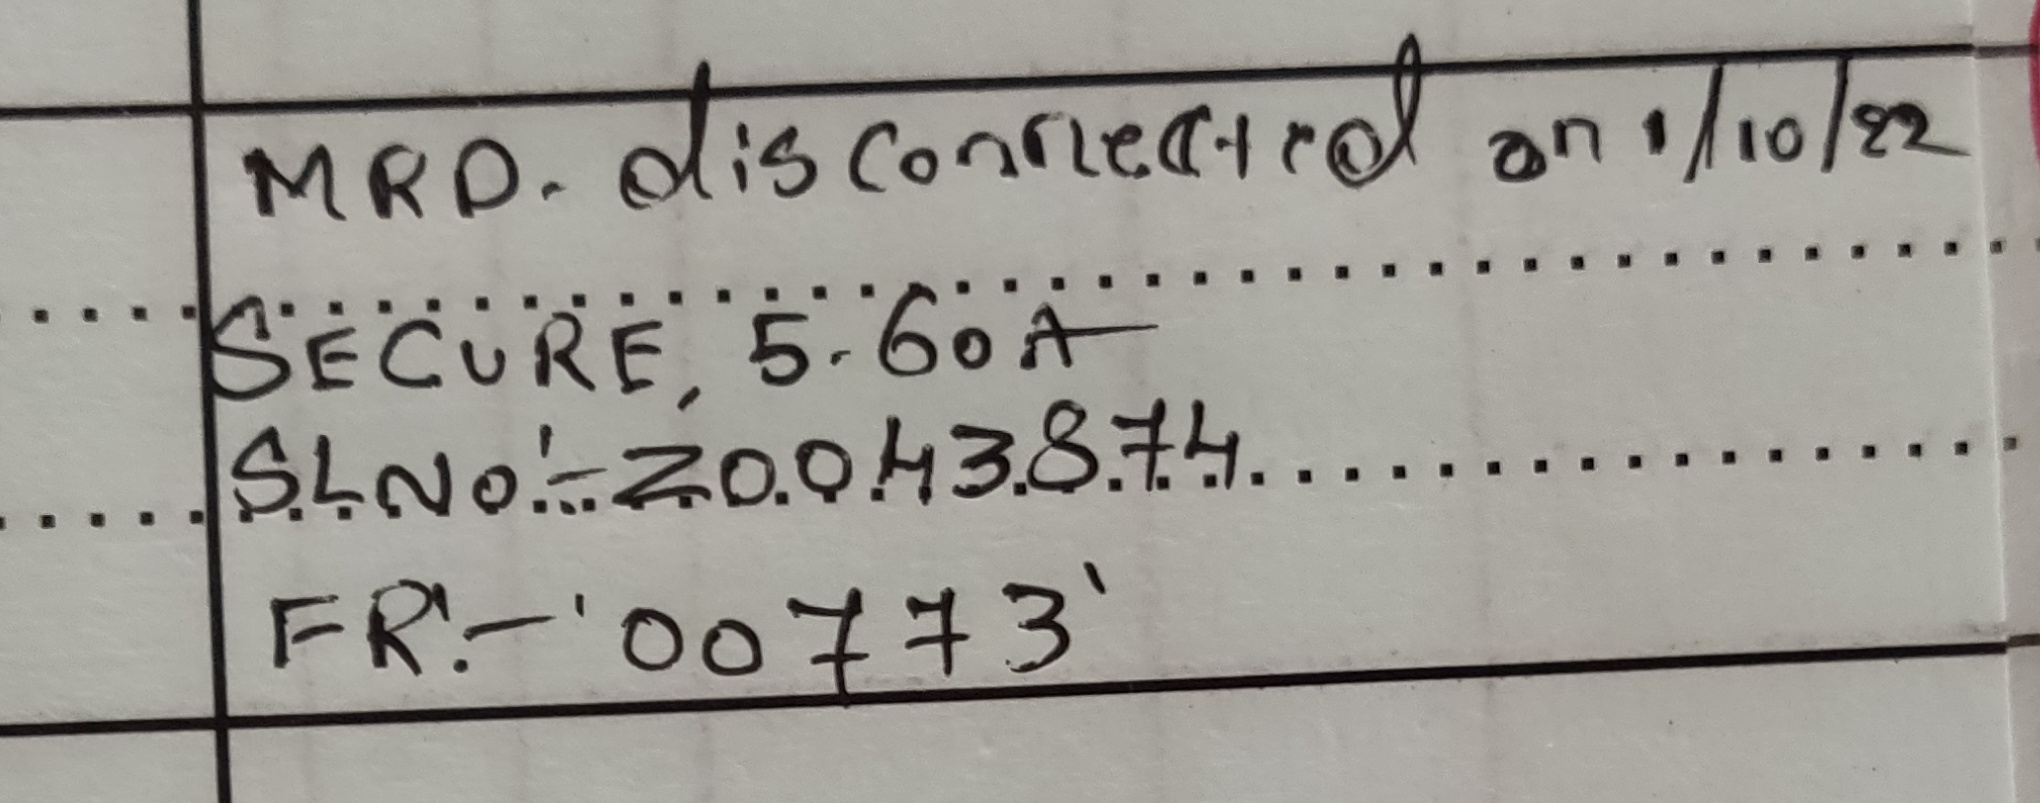 MRD. disconnected on 1/10/22
SECURE, 5-60A
SLNO:- 20043874
FR:- '00773'